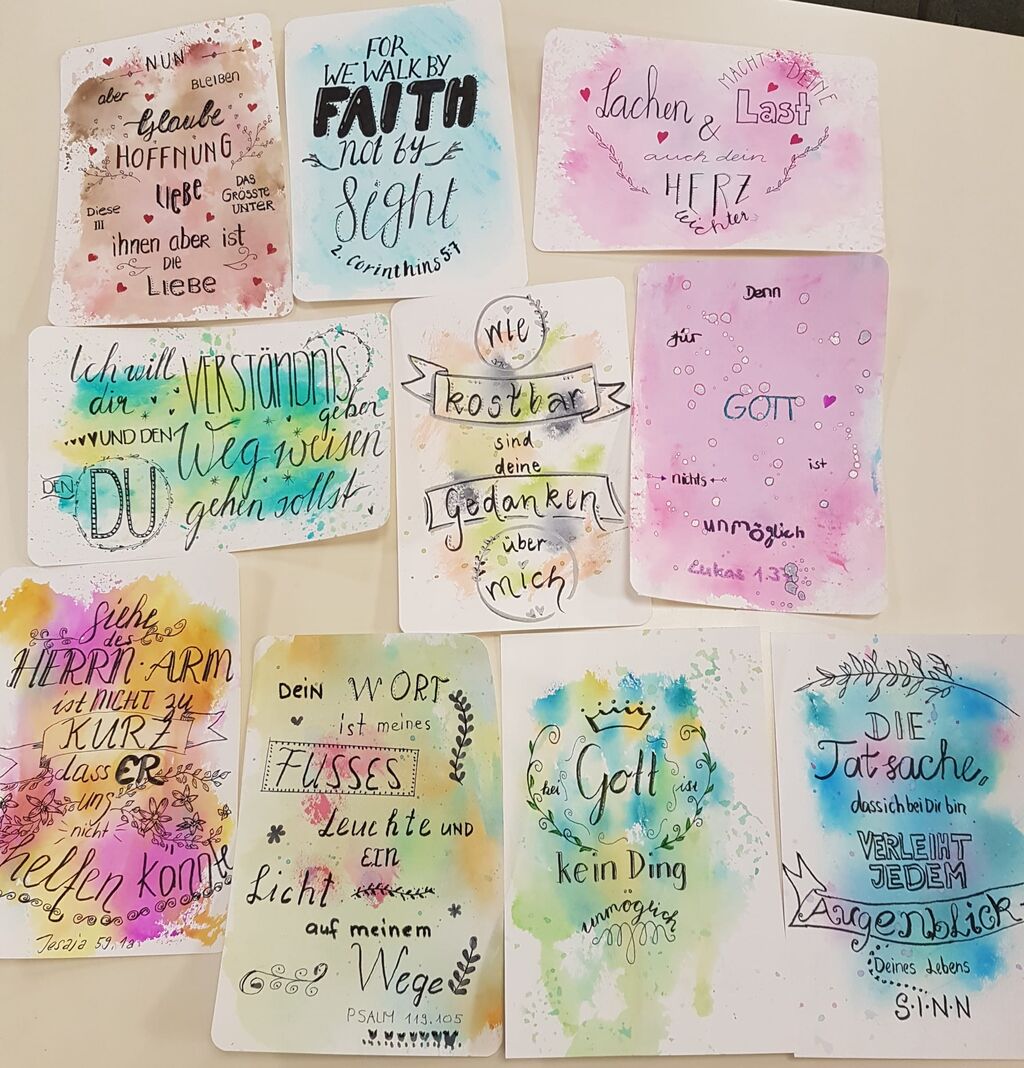 NUN
aber BLEIBEN
Glaube
HOFFNUNG
LIEBE
Diese III
DAS GRÖSSTE UNTER
ihnen aber ist
DIE
LIEBE
FOR
WE WALK BY
FAITH
not by
Sight
2. Corinthins 5:7
Lachen
&
MACHTS DEINE
Last
auch dein
HERZ
leichter
Ich will
dir VERSTÄNDNIS
geben
UND DEN Weg weisen
DEN DU gehen sollst
wie
kostbar
sind
deine
Gedanken
über
mich
Denn
für
GOTT
ist
nichts
unmöglich
Lukas 1.37
Siehe
des
HERRN ARM
ist NICHT zu
KURZ
dass ER
uns
nicht
helfen könnte
Jesaja 59,1a
DEIN WORT
ist meines
FUSSES
Leuchte UND
EIN
Licht
auf meinem
Wege
PSALM 119.105
bei Gott ist
kein Ding
unmöglich
DIE
Tatsache,
dass ich bei Dir bin
VERLEIHT
JEDEM
Augenblick
Deines Lebens
S·I·N·N